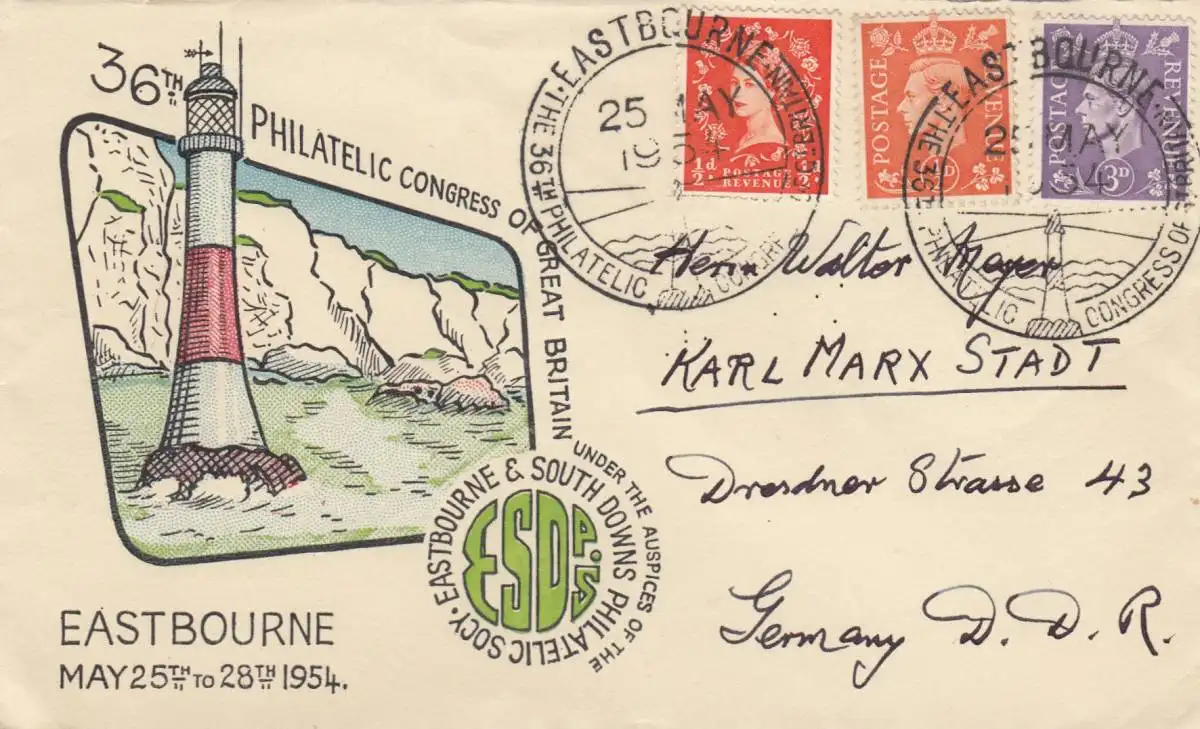 36TH
PHILATELIC CONGRESS OF GREAT BRITAIN
UNDER THE AUSPICES OF THE
EASTBOURNE & SOUTH DOWNS PHILATELIC SOCY.
ESDP.S
EASTBOURNE
MAY 25TH TO 28TH 1954.
EASTBOURNE
THE 36TH PHILATELIC
25 MAY
1954
½d ½d
POSTAGE
REVENUE
POSTAGE REVENUE
D
POSTAGE REVENUE
3D
EASTBOURNE
THE 36
PHILATELIC CONGRESS OF
25 MAY
1954
Herrn Walter Meyer
KARL MARX STADT
Dresdner Strasse 43
Germany D.D.R.